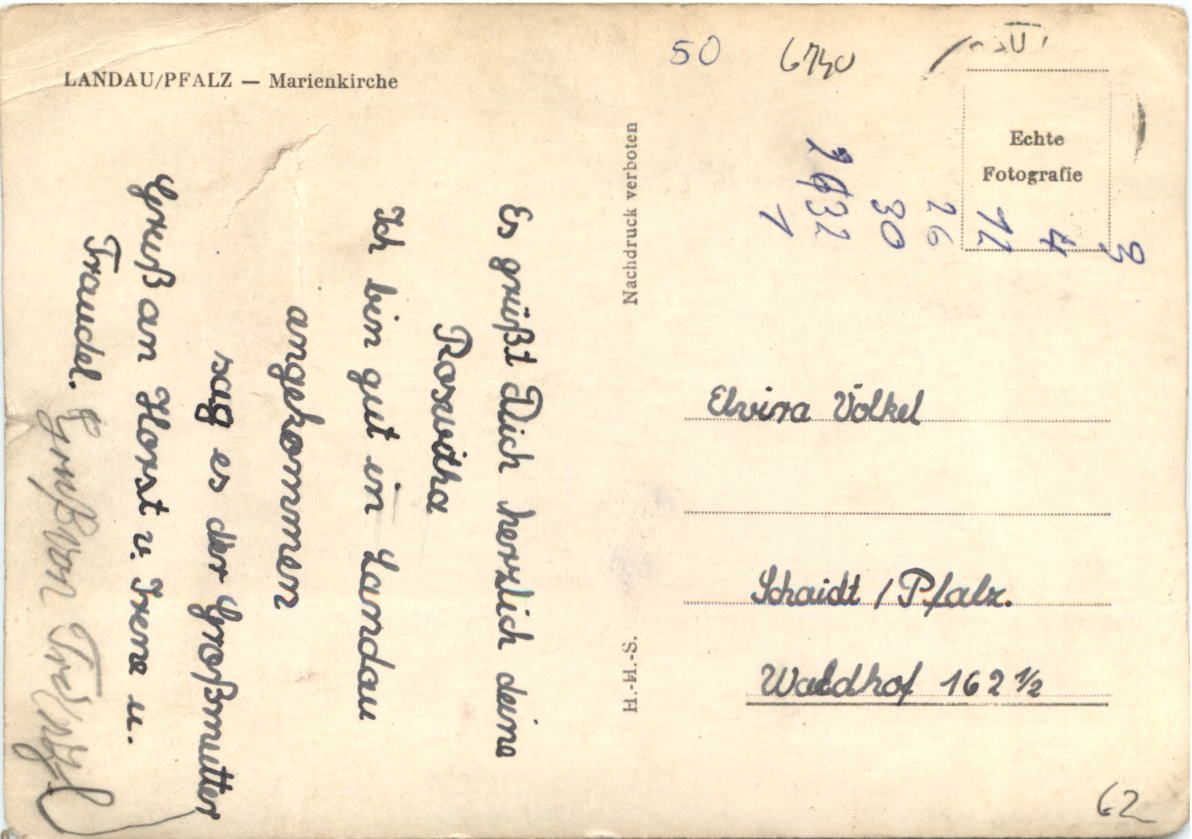 LANDAU/PFALZ — Marienkirche
Es grüßt Dich herzlich deine
Roswitha
Ich bin gut in Landau
angekommen
sag es der Großmutter
Gruß an Horst u. Irene u.
Traudel.
Gruß von
Nachdruck verboten
H.-H.-S.
50
6740
Echte
Fotografie
3
4
12
26
30
32
1
Elvira Völkel
Schaidt / Pfalz.
Waldhof 162 ½
62